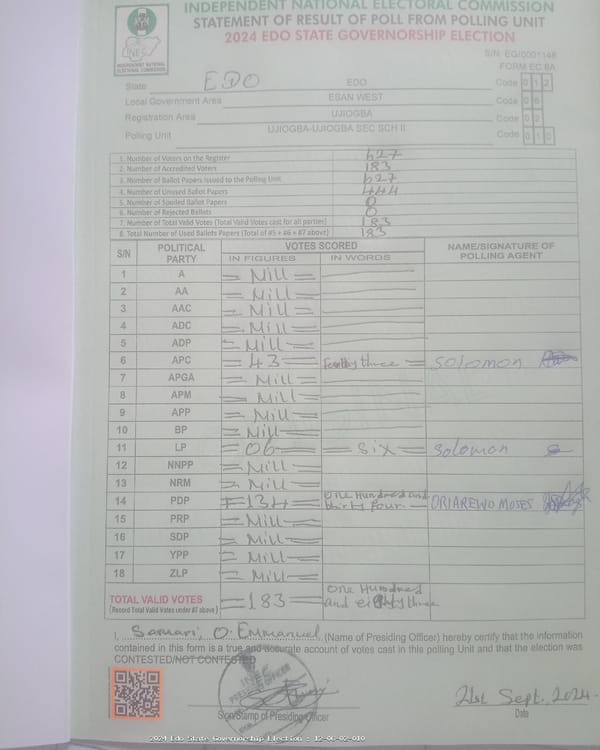 INDEPENDENT NATIONAL ELECTORAL COMMISSION
STATEMENT OF RESULT OF POLL FROM POLLING UNIT
2024 EDO STATE GOVERNORSHIP ELECTION
INEC
INDEPENDENT NATIONAL ELECTORAL COMMISSION
FORM EC 8A
State EDO EDO Code 0 1 2
Local Government Area ESAN WEST Code 0 6
Registration Area UJIOGBA Code 0 2
Polling Unit UJIOGBA-UJIOGBA SEC SCH II Code 0 1 0
1. Number of Voters on the Register 627
2. Number of Accredited Voters 183
3. Number of Ballot Papers Issued to the Polling Unit 627
4. Number of Unused Ballot Papers 444
5. Number of Spoiled Ballot Papers 0
6. Number of Rejected Ballots 0
7. Number of Total Valid Votes (Total Valid Votes cast for all parties) 183
8. Total Number of Used Ballots Papers (Total of #5 + #6 + #7 above) 183
S/N POLITICAL PARTY VOTES SCORED NAME/SIGNATURE OF POLLING AGENT
IN FIGURES IN WORDS
1 A = Nill =
2 AA = Nill =
3 AAC = Nill =
4 ADC = Nill =
5 ADP = Nill =
6 APC = 43 = three = Solomon
7 APGA = Nill =
8 APM = Nill =
9 APP = Nill =
10 BP = Nill =
11 LP = 06 = Six = Solomon
12 NNPP = Nill =
13 NRM = Nill =
14 PDP = 134 = One Hundred and thirty four = ORIAREWO MOSES
15 PRP = Nill =
16 SDP = Nill =
17 YPP = Nill =
18 ZLP = Nill =
TOTAL VALID VOTES = 183 = One Hundred and three
(Record Total Valid Votes under #7 above)
I, O. Emmanuel (Name of Presiding Officer) hereby certify that the information
contained in this form is a true and accurate account of votes cast in this polling Unit and that the election was
CONTESTED/NOT CONTESTED
INEC
PRESIDING OFFICER
21st Sept. 2024.
Sign/Stamp of Presiding Officer Date
2024 Edo State Governorship Election : 12-06-02-010